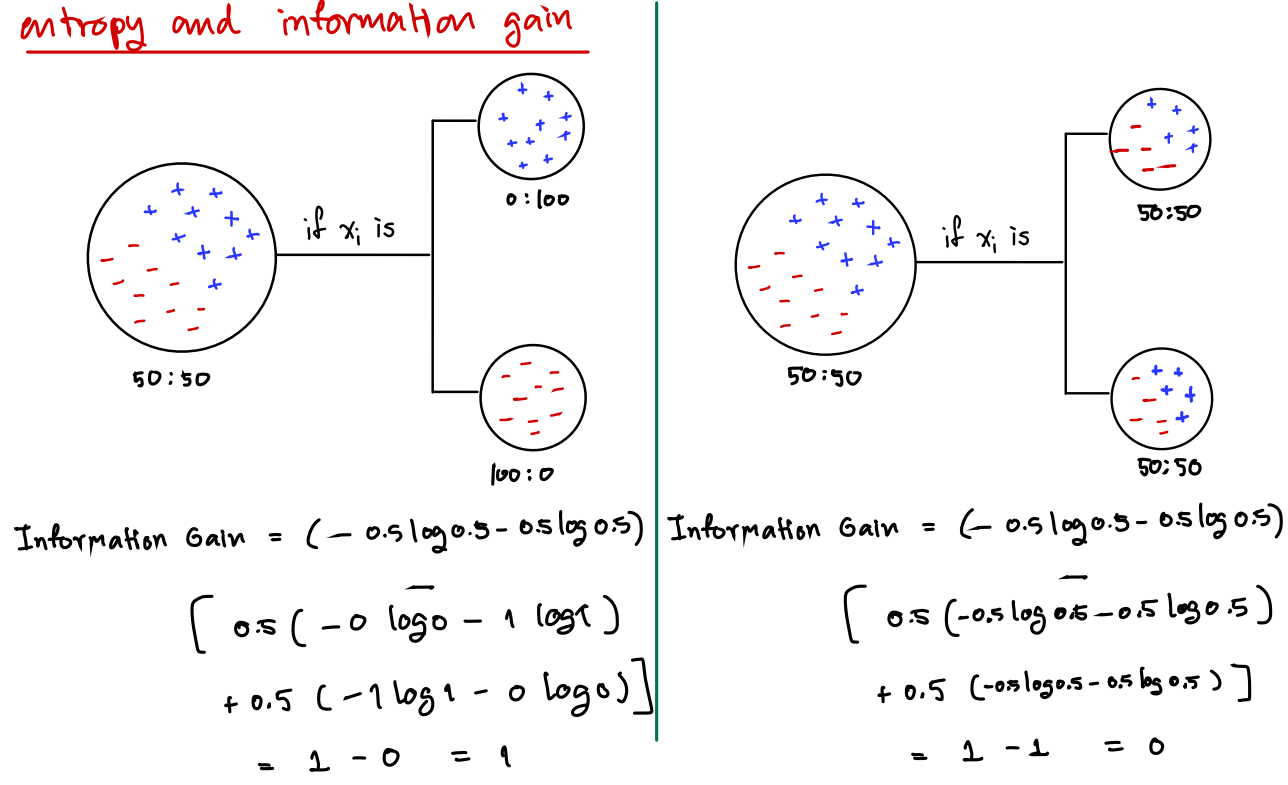 entropy and information gain
0:100
if xi is
50:50
100:0
Information Gain = (- 0.5 log 0.5 - 0.5 log 0.5)
-
[ 0.5 ( - 0 log 0 - 1 log 1 )
+ 0.5 ( - 1 log 1 - 0 log 0 ) ]
= 1 - 0 = 1
50:50
if xi is
50:50
50:50
Information Gain = (- 0.5 log 0.5 - 0.5 log 0.5)
-
[ 0.5 (-0.5 log 0.5 - 0.5 log 0.5 )
+ 0.5 (-0.5 log 0.5 - 0.5 log 0.5 ) ]
= 1 - 1 = 0